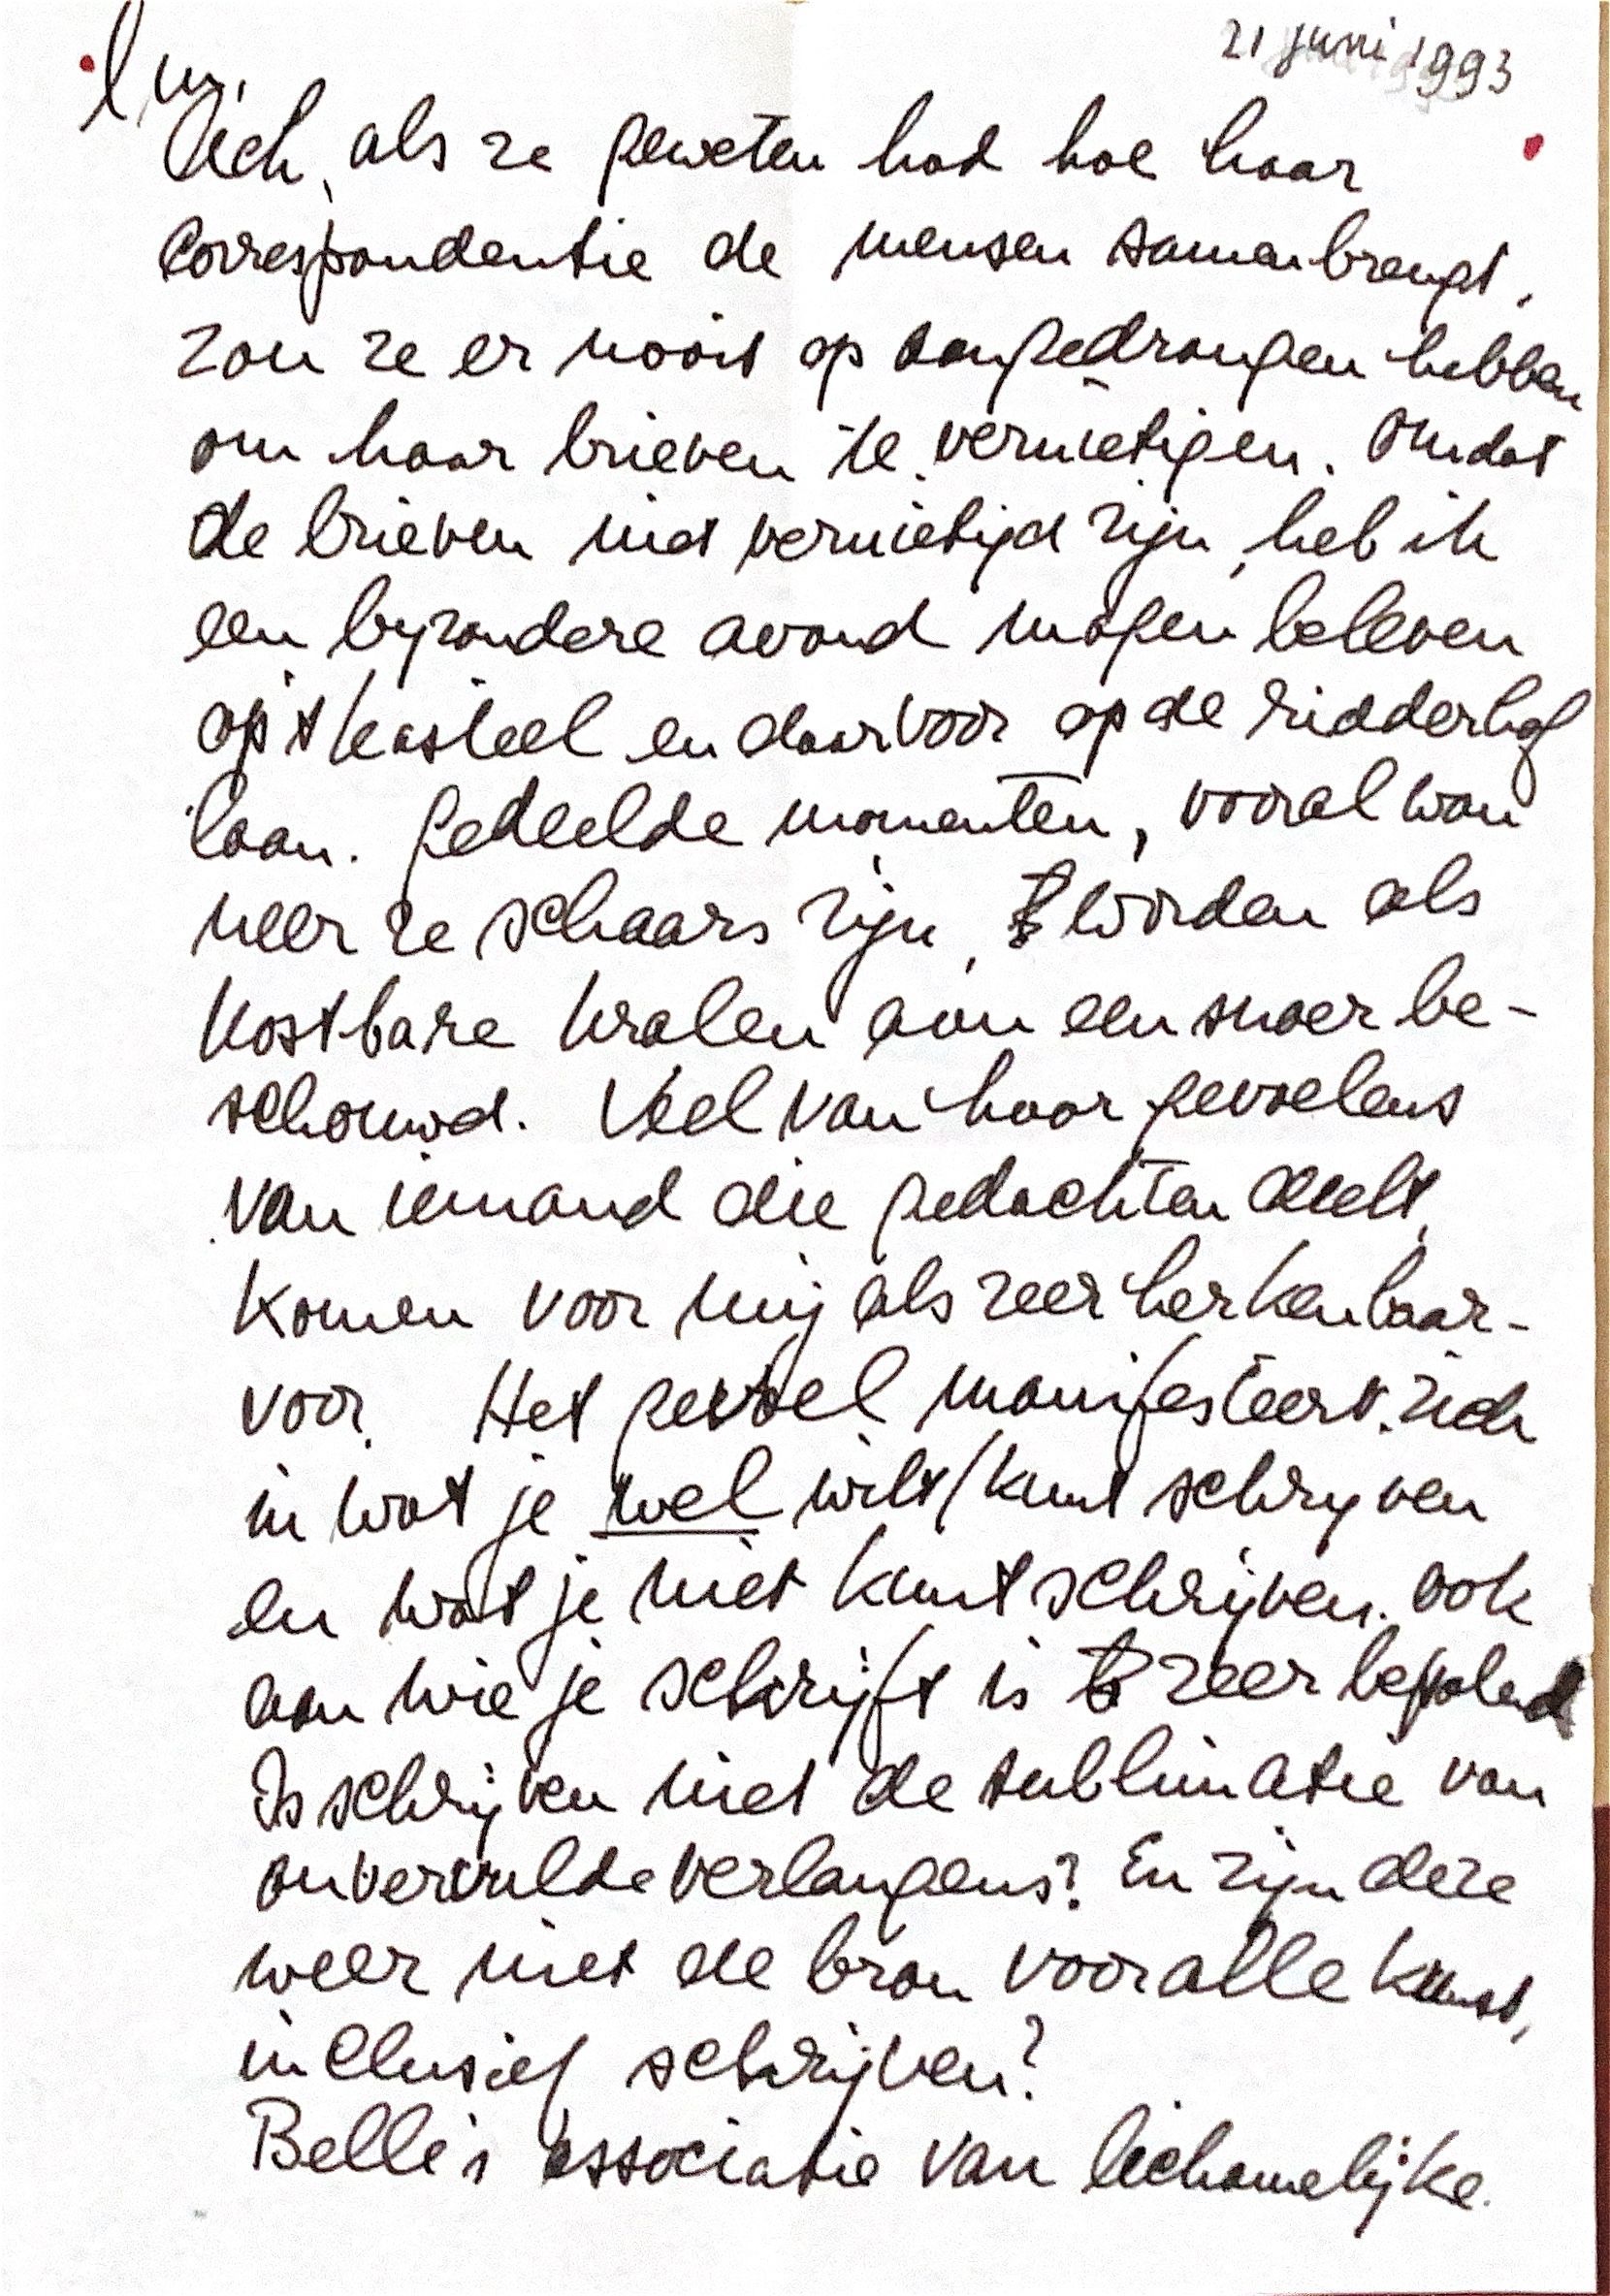 21 juni 1993
Ach, als ze geweten had hoe haar
correspondentie de mensen samenbrengt,
zou ze er nooit op aangedrongen hebben
om haar brieven te vernietigen. Omdat
de brieven niet vernietigd zijn, heb ik
een byzondere avond mogen beleven
op 't kasteel en daarvoor op de Ridderhof
laan. Gedeelde momenten, vooral wan
neer ze schaars zijn, worden als
kostbare kralen aan een snoer be-
schouwd. Veel van haar gevoelens
van iemand die gedachten deelt,
komen voor mij als zeer herkenbaar-
voor. Het gevoel manifesteert zich
in wat je wel wilt/kunt schryven
en wat je niet kunt schrijven. Ook
aan wie je schrijft is zeer bepalend
Is schrijven niet de sublimatie van
onvervulde verlangens? En zijn deze
weer niet de bron voor alle kunst,
inclusief schrijven?
Belle's associatie van lichamelijke